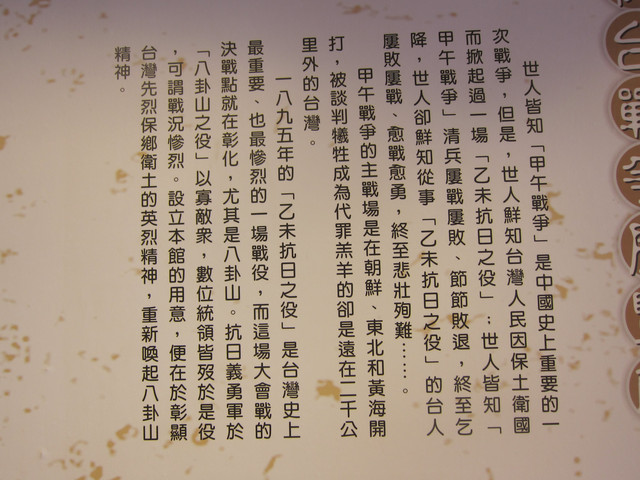 世人皆知「甲午戰爭」是中國史上重要的一
次戰爭，但是，世人鮮知台灣人民因保土衛國
而掀起過一場「乙未抗日之役」；世人皆知「
甲午戰爭」清兵屢戰屢敗、節節敗退，終至乞
降，世人卻鮮知從事「乙未抗日之役」的台人
屢敗屢戰、愈戰愈勇，終至悲壯殉難……。
甲午戰爭的主戰場是在朝鮮、東北和黃海開
打，被談判犧牲成為代罪羔羊的卻是遠在二千公
里外的台灣。
一八九五年的「乙未抗日之役」是台灣史上
最重要、也最慘烈的一場戰役，而這場大會戰的
決戰點就在彰化，尤其是八卦山。抗日義勇軍於
「八卦山之役」以寡敵眾，數位統領皆歿於是役
，可謂戰況慘烈。設立本館的用意，便在於彰顯
台灣先烈保鄉衛土的英烈精神，重新喚起八卦山
精神。